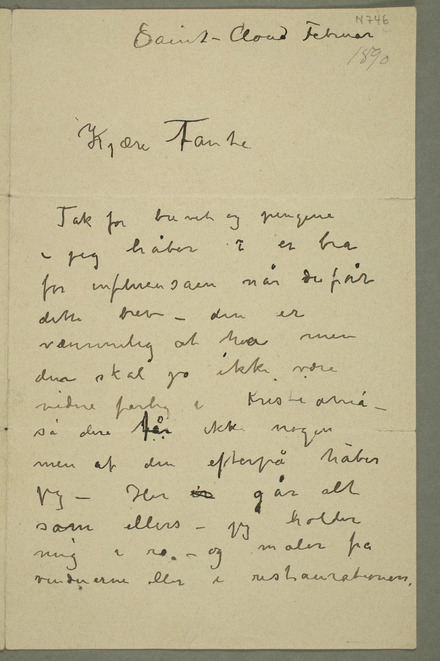 N 746
Saint-Cloud Februar
1890
Kjære Tante
Tak for brevet og pengene
– jeg håber I er bra
for influensaen når du får
dette brev – den er
væmmelig at ha men
den skal jo ikke være
videre farlig i Kristiania –
så dere får ikke nogen
men af den efterpå håber
jeg – Her går alt
som ellers – jeg holder
mig i ro – og maler fra
vinduerne eller i restaurationen.